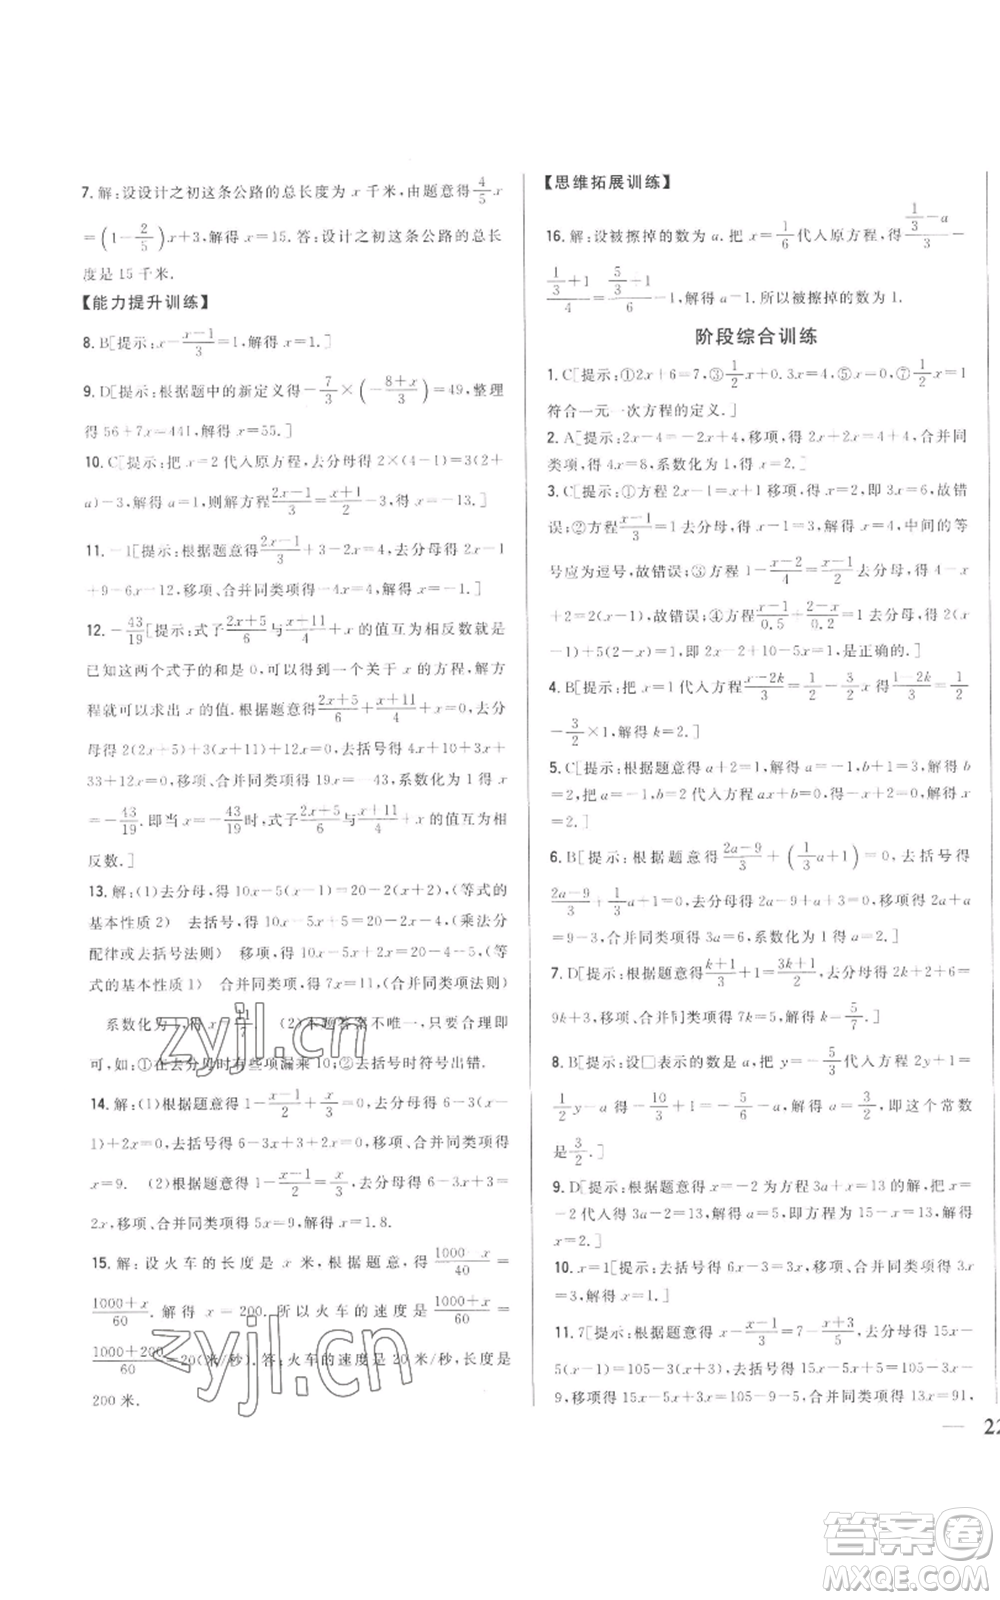 7. 解:设设计之初这条公路的总长度为 x 千米,由题意得 4/5 x
= (1-2/5)x+3,解得 x=15. 答:设计之初这条公路的总长
度是 15 千米.
【能力提升训练】
8. B[提示:x-(x-1)/3=1,解得 x=1.]
9. D[提示:根据题中的新定义得-7/3×(-(8+x)/3)=49,整理
得 56+7x=441,解得 x=55.]
10. C[提示:把 x=2 代入原方程,去分母得 2×(4-1)=3(2+
a)-3,解得 a=1,则解方程(2x-1)/3=(x+1)/3-3,得 x=-13.]
11. -1[提示:根据题意得(2x-1)/3+3-2x=4,去分母得 2x-1
+9-6x=12,移项、合并同类项得-4x=4,解得 x=-1.]
12. -43/19[提示:式子(2x+5)/6与(x+11)/4+x 的值互为相反数就是
已知这两个式子的和是 0,可以得到一个关于 x 的方程,解方
程就可以求出 x 的值. 根据题意得(2x+5)/6+(x+11)/4+x=0,去分
母得 2(2x+5)+3(x+11)+12x=0,去括号得 4x+10+3x+
33+12x=0,移项、合并同类项得 19x=-43,系数化为 1 得 x
=-43/19. 即当 x=-43/19时,式子(2x+5)/6与(x+11)/4+x 的值互为相
反数.]
13. 解:(1)去分母,得 10x-5(x-1)=20-2(x+2),(等式的
基本性质 2)  去括号,得 10x-5x+5=20-2x-4,(乘法分
配律或去括号法则)  移项,得 10x-5x+2x=20-4-5,(等
式的基本性质 1)  合并同类项,得 7x=11,(合并同类项法则)
系数化为 1,得 x=11/7.  (2)本题答案不唯一,只要合理即
可,如:①在去分母时有些项漏乘 10;②去括号时符号出错.
14. 解:(1)根据题意得 1-(x-1)/2+x/3=0,去分母得 6-3(x-
1)+2x=0,去括号得 6-3x+3+2x=0,移项、合并同类项得
x=9.  (2)根据题意得 1-(x-1)/2=x/3,去分母得 6-3x+3=
2x,移项、合并同类项得 5x=9,解得 x=1.8.
15. 解:设火车的长度是 x 米,根据题意得(1000-x)/40=
(1000+x)/60. 解得 x=200. 所以火车的速度是(1000+x)/60=
(1000+200)/60=20(米/秒). 答:火车的速度是 20 米/秒,长度是
200 米.
【思维拓展训练】
16. 解:设被擦掉的数为 a. 把 x=1/6代入原方程,得(1/3-a)/3-
(1/3+1)/4=(5/3+1)/6-1,解得 a=1. 所以被擦掉的数为 1.
阶段综合训练
1. C[提示:①2x+6=7,③1/2x+0.3=4,⑤x=0,⑦1/2x=1
符合一元一次方程的定义.]
2. A[提示:2x-4=-2x+4,移项,得 2x+2x=4+4,合并同
类项,得 4x=8,系数化为 1,得 x=2.]
3. C[提示:①方程 2x-1=x+1移项,得 x=2,即 3x=6,故错
误;②方程(x-1)/3=1去分母,得 x-1=3,解得 x=4,中间的等
号应为逗号,故错误;③方程 1-(x-2)/4=(x-1)/2去分母,得 4-x
+2=2(x-1),故错误;④方程(x-1)/0.5+(2-x)/0.2=1去分母,得 2(x
-1)+5(2-x)=1,即 2x-2+10-5x=1,是正确的.]
4. B[提示:把 x=1代入方程(x-2k)/3=1/2-3/2x 得(1-2k)/3=1/2
-3/2×1,解得 k=2.]
5. C[提示:根据题意得 a+2=1,解得 a=-1,b+1=3,解得 b
=2,把 a=-1,b=2代入方程 ax+b=0,得-x+2=0,解得 x
=2.]
6. B[提示:根据题意得(2a-9)/3+(1/3a+1)=0,去括号得
(2a-9)/3+1/3a+1=0,去分母得 2a-9+a+3=0,移项得 2a+a
=9-3,合并同类项得 3a=6,系数化为 1得 a=2.]
7. D[提示:根据题意得(k+1)/3+1=(3k+1)/2,去分母得 2k+2+6=
9k+3,移项、合并同类项得 7k=5,解得 k=5/7.]
8. B[提示:设□表示的数是 a,把 y=-5/3代入方程 2y+1=
1/2y-a 得-10/3+1=-5/6-a,解得 a=3/2,即这个常数
是3/2.]
9. D[提示:根据题意得 x=-2 为方程 3a+x=13 的解,把 x=
-2代入得 3a-2=13,解得 a=5,即方程为 15-x=13,解得 x
=2.]
10. x=1[提示:去括号得 6x-3=15-12x,移项得 6x+12x=
15+3,合并得 18x=18,解得 x=1.]
11. 7[提示:根据题意得 x-(x-1)/3=7-(x+3)/5,去分母得 15x-
5(x-1)=105-3(x+3),去括号得 15x-5x+5=105-3x-
9,移项得 15x-5x+3x=105-9-5,合并同类项得 13x=91,
— 22
zyjl.cn
zyjl.cn
答案卷
MXQE.COM